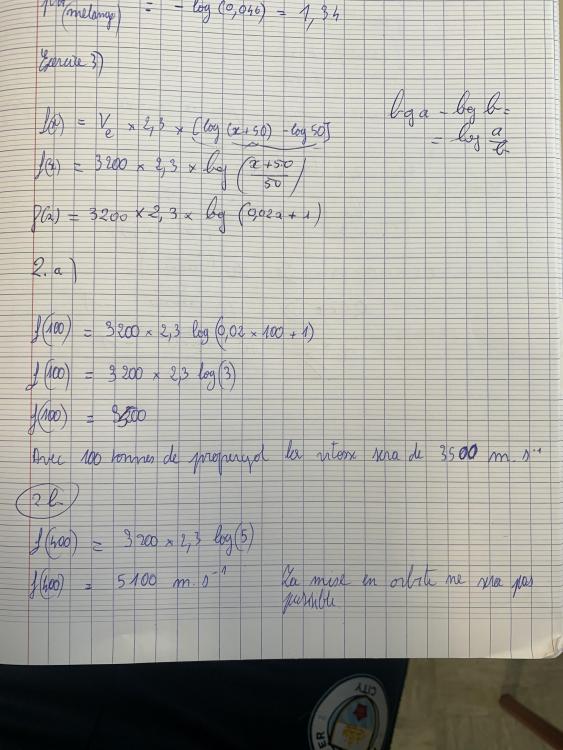 (mélange) = - log(0,046) = 1,34
Exercice 3)
f(x) = Ve × 2,3 × [log (x+50) - log 50]
log a - log b =
= log a/b
f(x) = 3200 × 2,3 × log (x+50/50)
f(x) = 3200 × 2,3 × log (0,02x + 1)
2.a)
f(100) = 3200 × 2,3 log(0,02 × 100 + 1)
f(100) = 3200 × 2,3 log(3)
f(100) = 3500
Avec 100 tonnes de propergol la vitesse sera de 3500 m.s⁻¹
2b
= 3200 × 2,3 log(5)
= 5100 m.s⁻¹ La mise en orbite ne sera pas
possible
CITY
ER